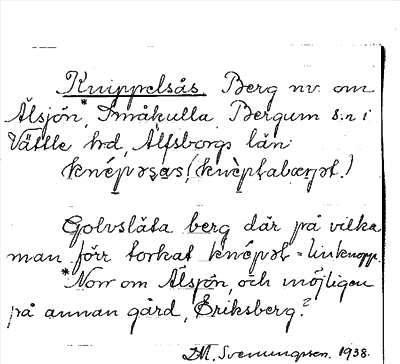 Knippelsås. Berg nv. om
Älsjön*, Småkulla, Bergum s:n i
Vättle hd, Älfsborgs län.
Golvsläta berg där på vilka
man förr torkat knépəl = linknopp.
*Norr om Älsjön, och möjligen
på annan gård, Eriksberg?
D.A. Svenungsson. 1938.